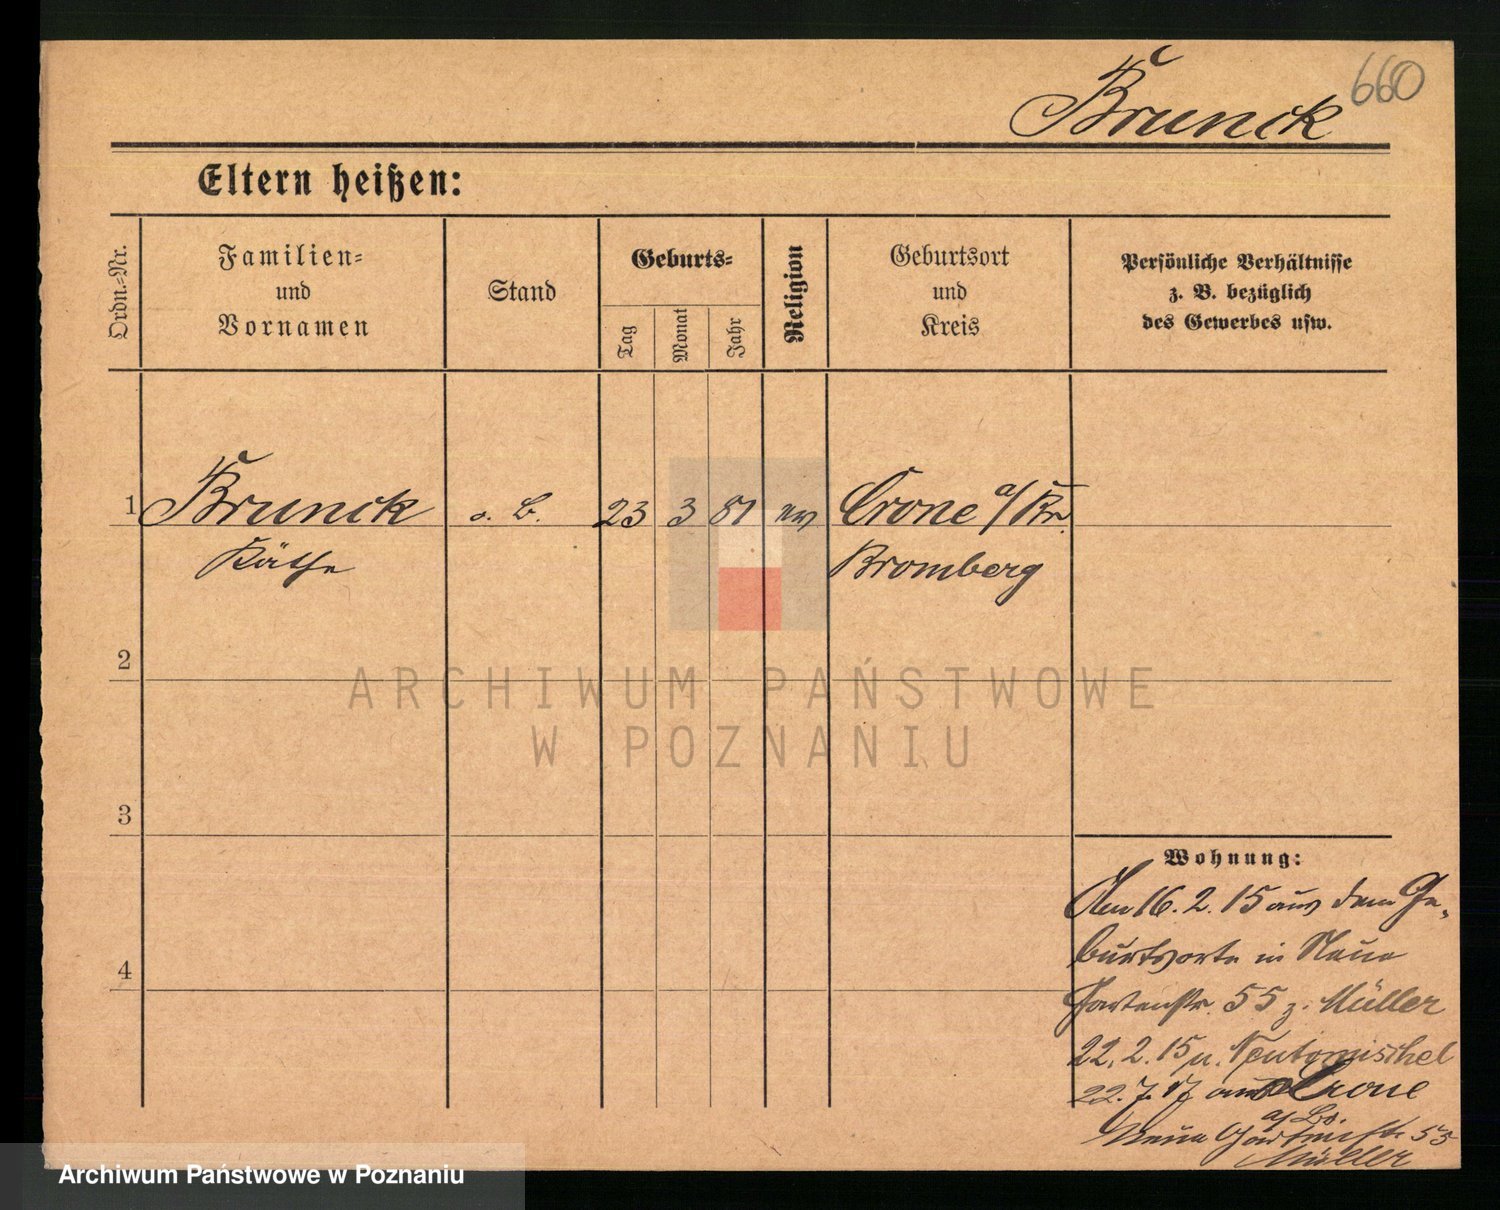 Brunck
660
Eltern heißen:
Ordn.-Nr.
Familien-
und
Vornamen
Stand
Geburts-
Tag
Monat
Jahr
Religion
Geburtsort
und
Kreis
Persönliche Verhältnisse
z. B. bezüglich
des Gewerbes usw.
1 Brunck o. B. 23 3 81 ev Crone a/ Br.
Käthe Bromberg
2
3
4
ARCHIWUM PAŃSTWOWE
W POZNANIU
Wohnung:
Am 16. 2. 15 aus dem Ge-
burtsorte in Neue
Gartenstr. 55 z. Müller
22. 2. 15 n. Neutomischel
22. 7. 17 aus Crone
a/ Br.
Neue Gartenstr. 55
Müller
Archiwum Państwowe w Poznaniu